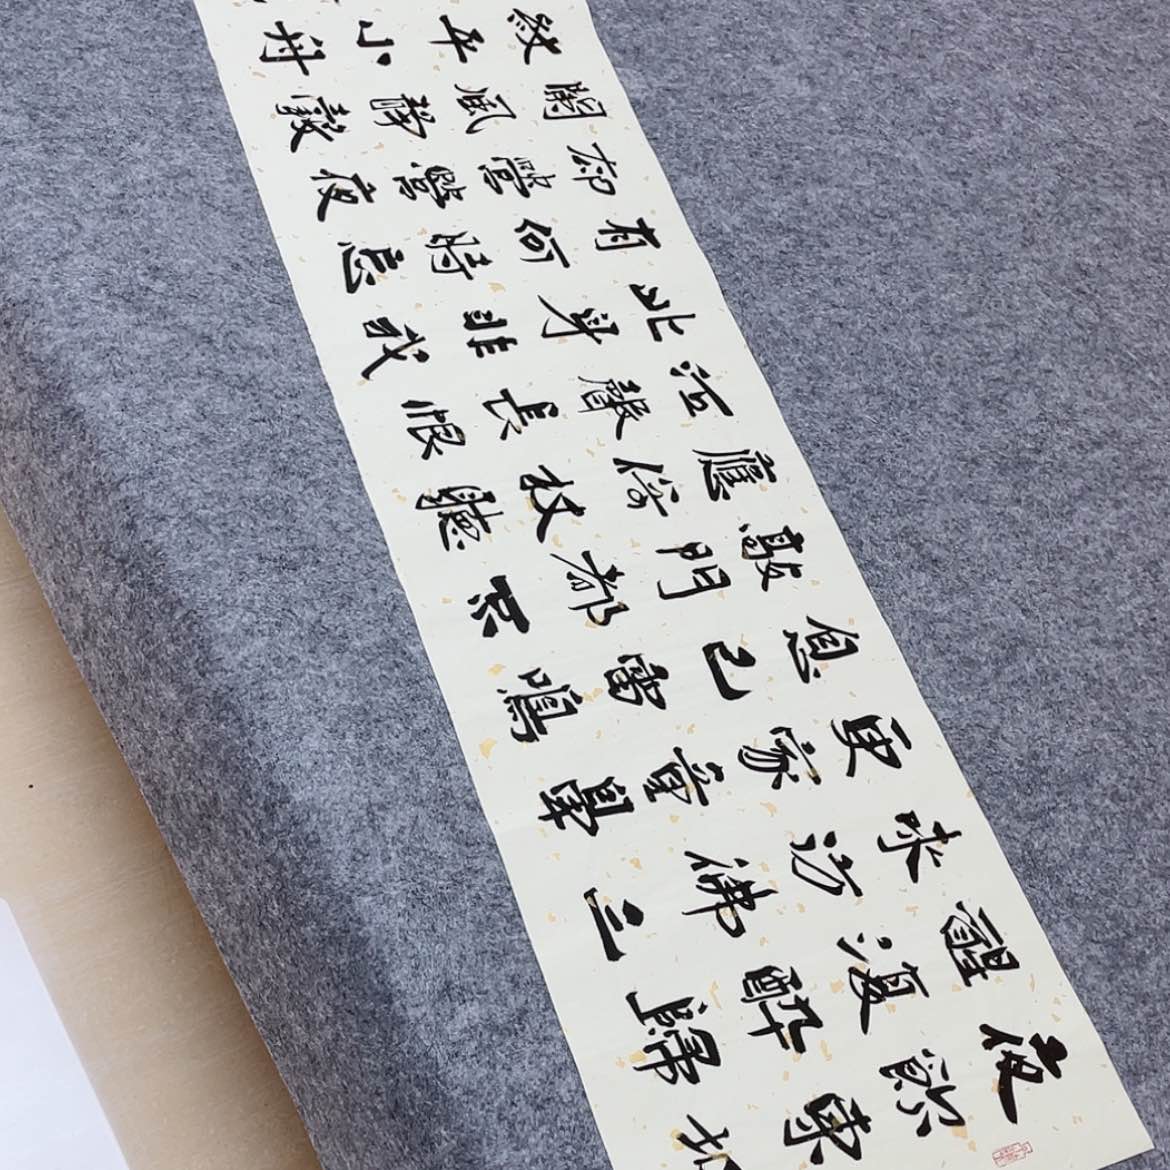 夜飲東坡
醒復醉歸
來彷彿三
更家童鼻
息已雷鳴
敲門都不
應倚杖聽
江聲長恨
此身非我
有何時忘
却營營夜
闌風靜縠
紋平小舟